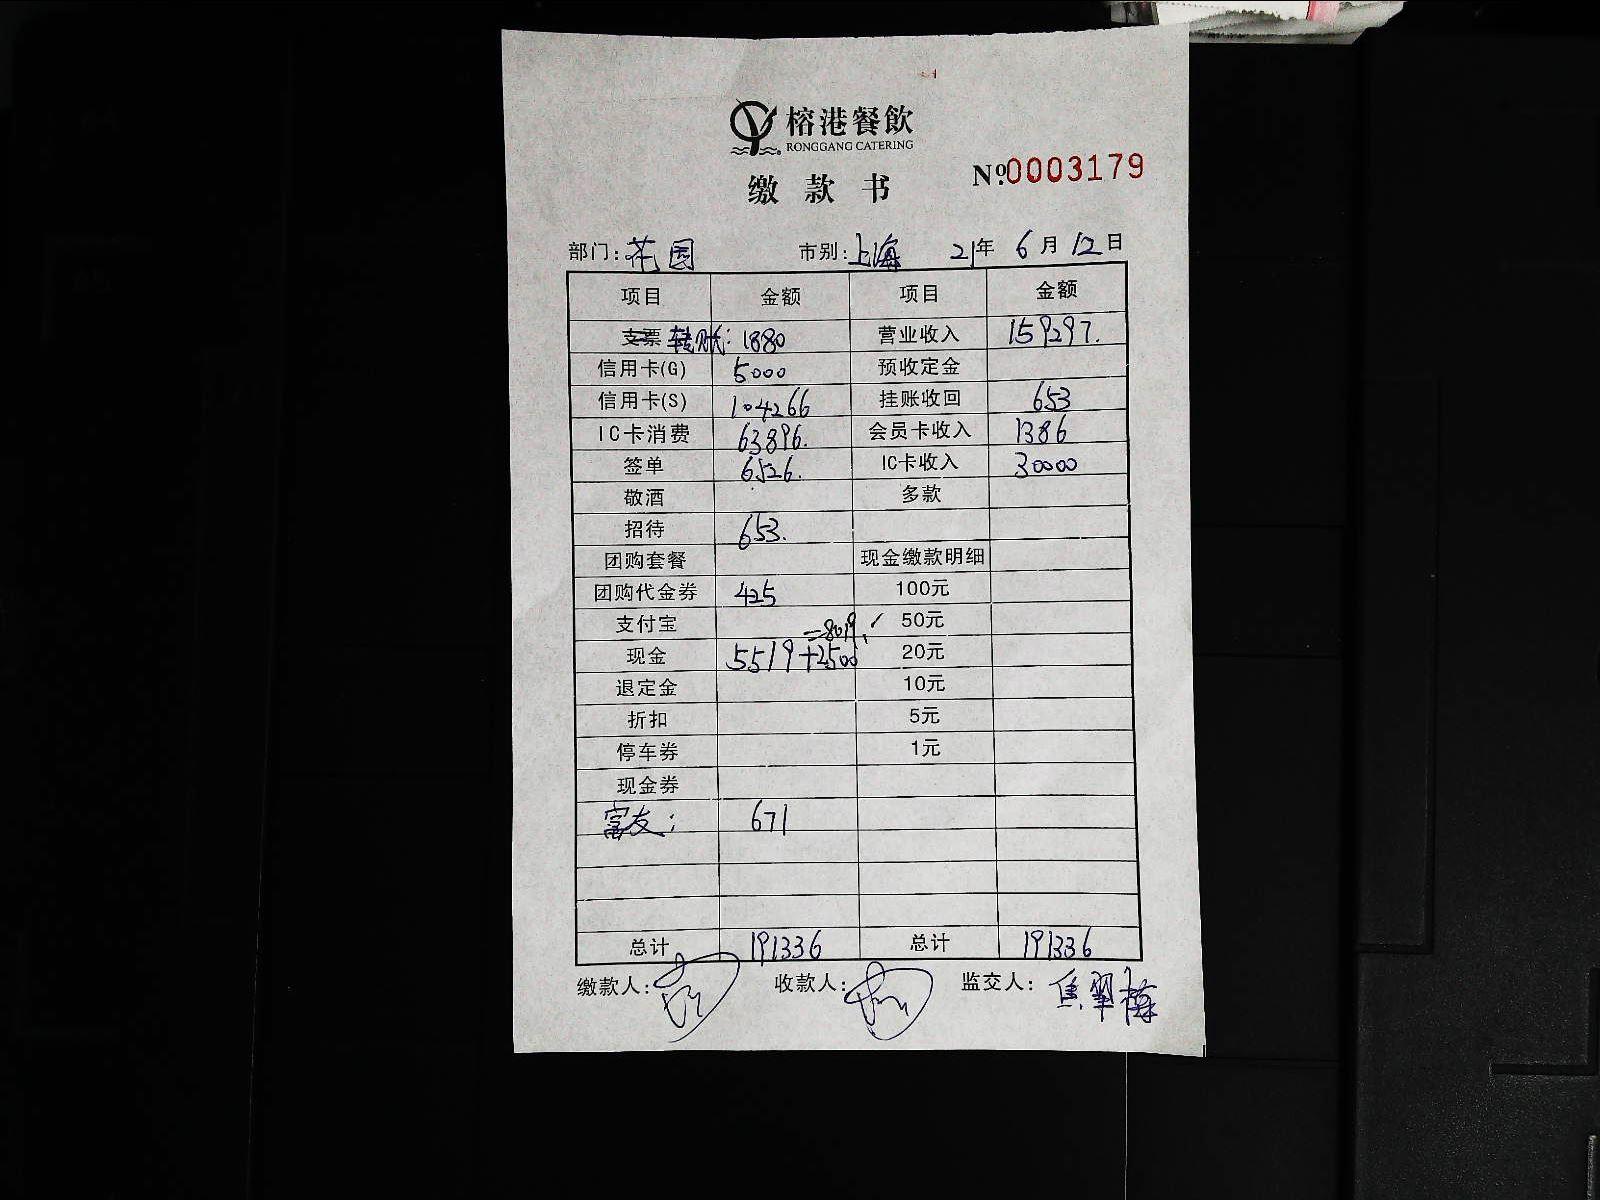 榕港餐飲
RONGGANG CATERING
缴款书 №0003179
部门:花园 市别:上海 21年 6月12日
项目 金额 项目 金额
支票 转账: 1880 营业收入 159297.
信用卡(G) 5000 预收定金
信用卡(S) 104266 挂账收回 653
IC卡消费 63896. 会员卡收入 1386
签单 6526. IC卡收入 30000
敬酒 多款
招待 653.
团购套餐 现金缴款明细
团购代金券 425 100元
支付宝 =8019. ✓ 50元
现金 5519+2500 20元
退定金 10元
折扣 5元
停车券 1元
现金券
富友: 671
总计 191336 总计 191336
缴款人: 收款人: 监交人: